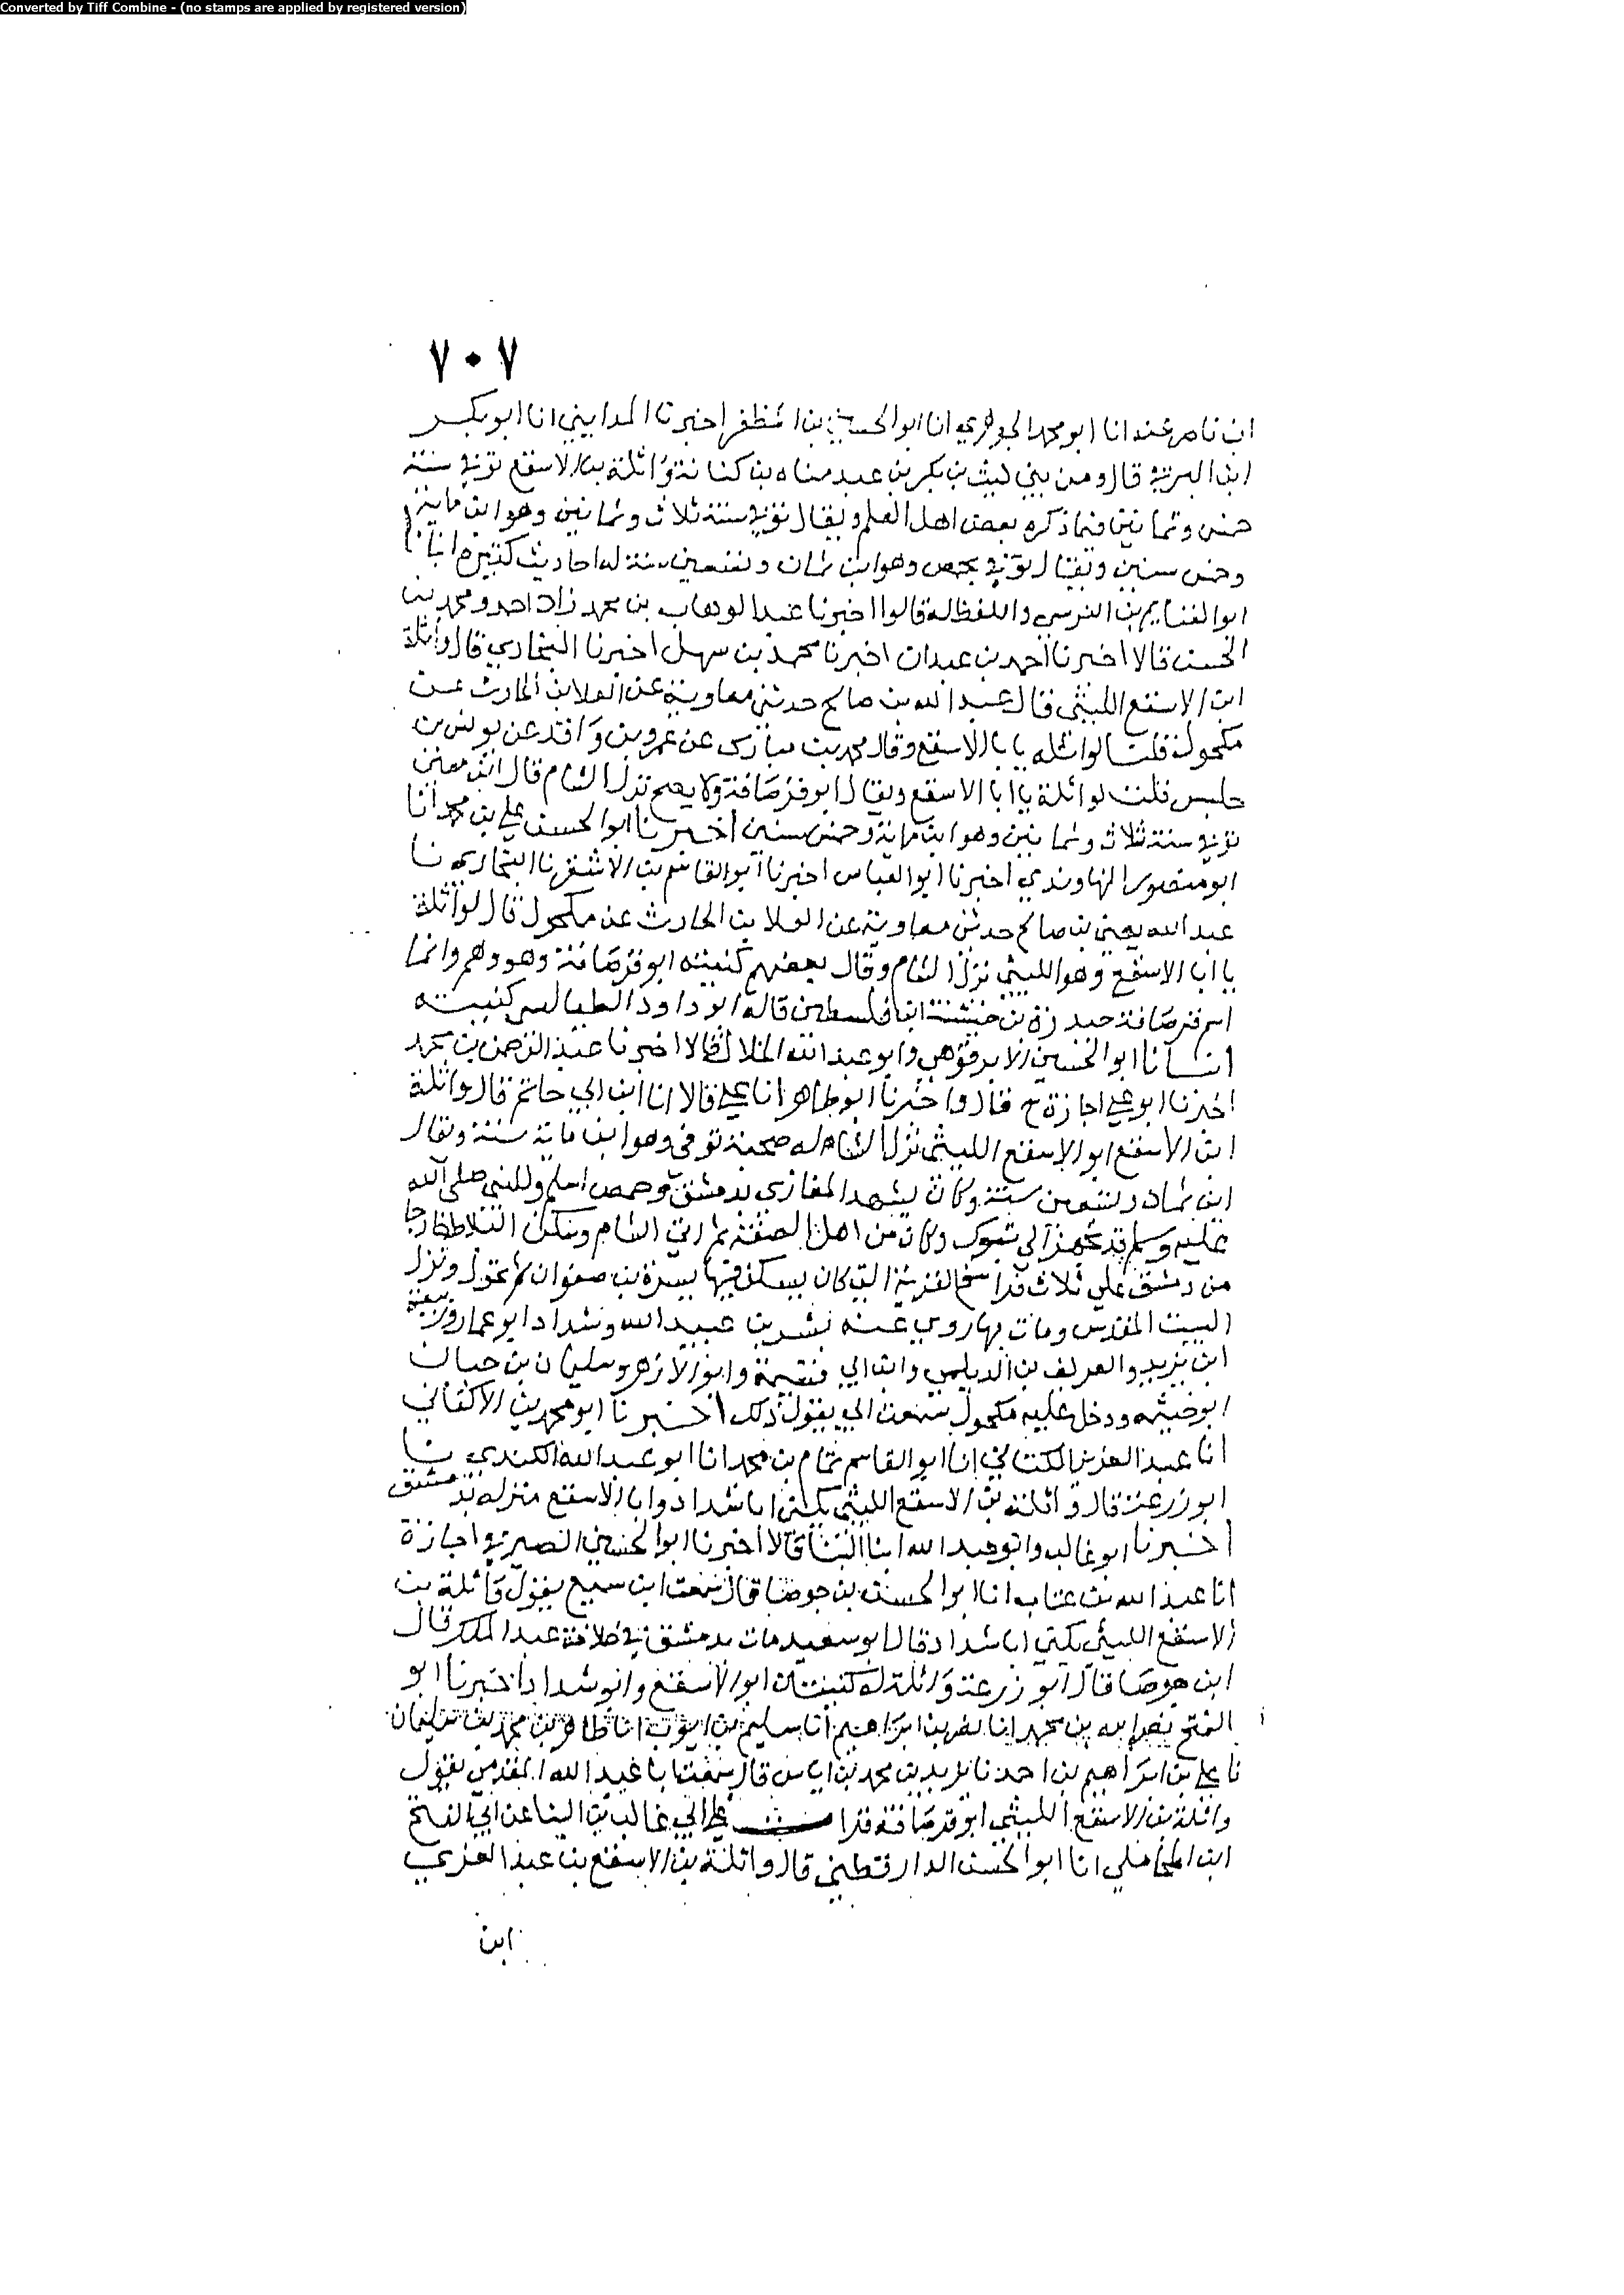 Converted by Tiff Combine - (no stamps are applied by registered version)
٧٠٧
ابن ناصر عنه انا ابو محمد الجوهري انا ابو الحسين بن المظفر اخبرنا المدايني انا ابو بكر
ابن البرقي قال ومن بني ليث بن بكر بن عبد مناه بن كنانة واثلة بن الاسقع توفي سنة
خمس وثمانين فيما ذكره بعض اهل العلم ويقال توفي سنة ثلاث وثمانين وهو ابن ماية
وخمس سنين ويقال توفي بحمص وهو ابن ثمان وتسعين سنة له احاديث كثيرة انبانا
ابو الغنايم بن النرسي واللفظ له قالوا اخبرنا عبد الوهاب بن محمد زاد احمد ومحمد بن
الحسن قالا اخبرنا احمد بن عبدان اخبرنا محمد بن سهل اخبرنا البخاري قال واثلة
ابن الاسقع الليثي قال عبد الله بن صالح حدثني معاوية عن العلا بن الحارث عن
مكحول قلت لواثله يا با الاسقع وقال محمد بن مبارك عن عمرو بن واقد عن يونس بن
حلبس قلت لواثلة يا ابا الاسقع ويقال ابو قرصافة ولا يصح نزل الشام قال ابن معين
توفي سنة ثلاث وثمانين وهو ابن ماية وخمس سنين اخبرنا ابو الحسن علي بن محمد انا
ابو منصور النهاوندي اخبرنا ابو العباس اخبرنا ابو القاسم بن الاشقر نا البخاري نا
عبد الله يعني بن صالح حدثني معاوية عن العلا بن الحارث عن مكحول قال لواثلة
يا ابا الاسقع وهو الليثي نزل الشام وقال بعضهم كنيته ابو قرصافة وهو وهم وانما
اسم قرصافة جندرة بن خيشنة فلسطين قاله ابو داود الطيالسي كنيته
انبانا ابو الحسين الابرقوهي وابو عبد الله الخلال قالا اخبرنا عبد الرحمن بن محمد
اخبرنا ابو علي اجازة ح قال واخبرنا ابو طاهر انا علي قالا انا ابن ابي حاتم قال واثلة
ابن الاسقع ابو الاسقع الليثي نزل الشام له صحبة توفى وهو ابن ماية سنة ويقال
ابن ثمان وتسعين سنة وكان يشهد المغازي بدمشق وحمص اسلم وللنبي صلى الله
عليه وسلم قد تجهز الى تبوك وكان من اهل الصفة ثم اتى الشام وسكن البلاط خارجا
من دمشق على ثلاث فراسخ القرية التي كان يسكن فيها يسرة بن صفوان ثم تحول ونزل
البيت المقدس ومات بها روى عنه بشر بن عبيد الله وشداد ابو عمار وربيعة
ابن يزيد والعريف بن الديلمي وابن ابي قسيمة وابو الازهر وسليمان بن حيان
ابو خيثمه ودخل عليه مكحول سمعت ابي يقول ذلك اخبرنا ابو محمد بن الاكفاني
انا عبد العزيز الكتاني انا ابو القاسم تمام بن محمد انا ابو عبد الله الكندي نا
ابو زرعة قال واثلة بن الاسقع الليثي يكنى ابا شداد وابا الاسقع منزله بدمشق
اخبرنا ابو غالب وابو عبد الله ابنا البنا قالا اخبرنا ابو الحسين الصيرفي اجازة
انا عبد الله بن عتاب انا ابو الحسن بن جوصا قال سمعت ابن سميع يقول واثلة بن
الاسقع الليثي يكنى ابا شداد قال ابو سعيد مات بدمشق في خلافة عبد الملك قال
ابن جوصا قال ابو زرعة واثلة له كنيتان ابو الاسقع وابو شداد اخبرنا ابو
الفتح نصر الله بن محمد انا نصر بن ابراهيم انا سليم بن ايوب انا طاهر بن محمد بن سليمان
نا علي بن ابراهيم بن احمد نا يزيد بن محمد بن اياس قال سمعت ابا عبد الله المقدمي يقول
واثلة بن الاسقع الليثي ابو قرصافة قرات على ابي غالب بن البنا عن ابي الفتح
ابن المحاملي انا ابو الحسن الدارقطني قال واثلة بن الاسقع بن عبد العزي
ابن